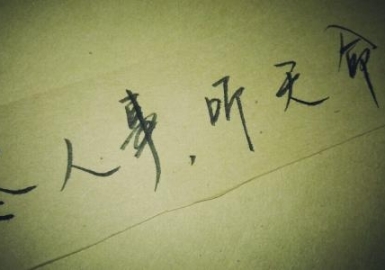 人事，听天命